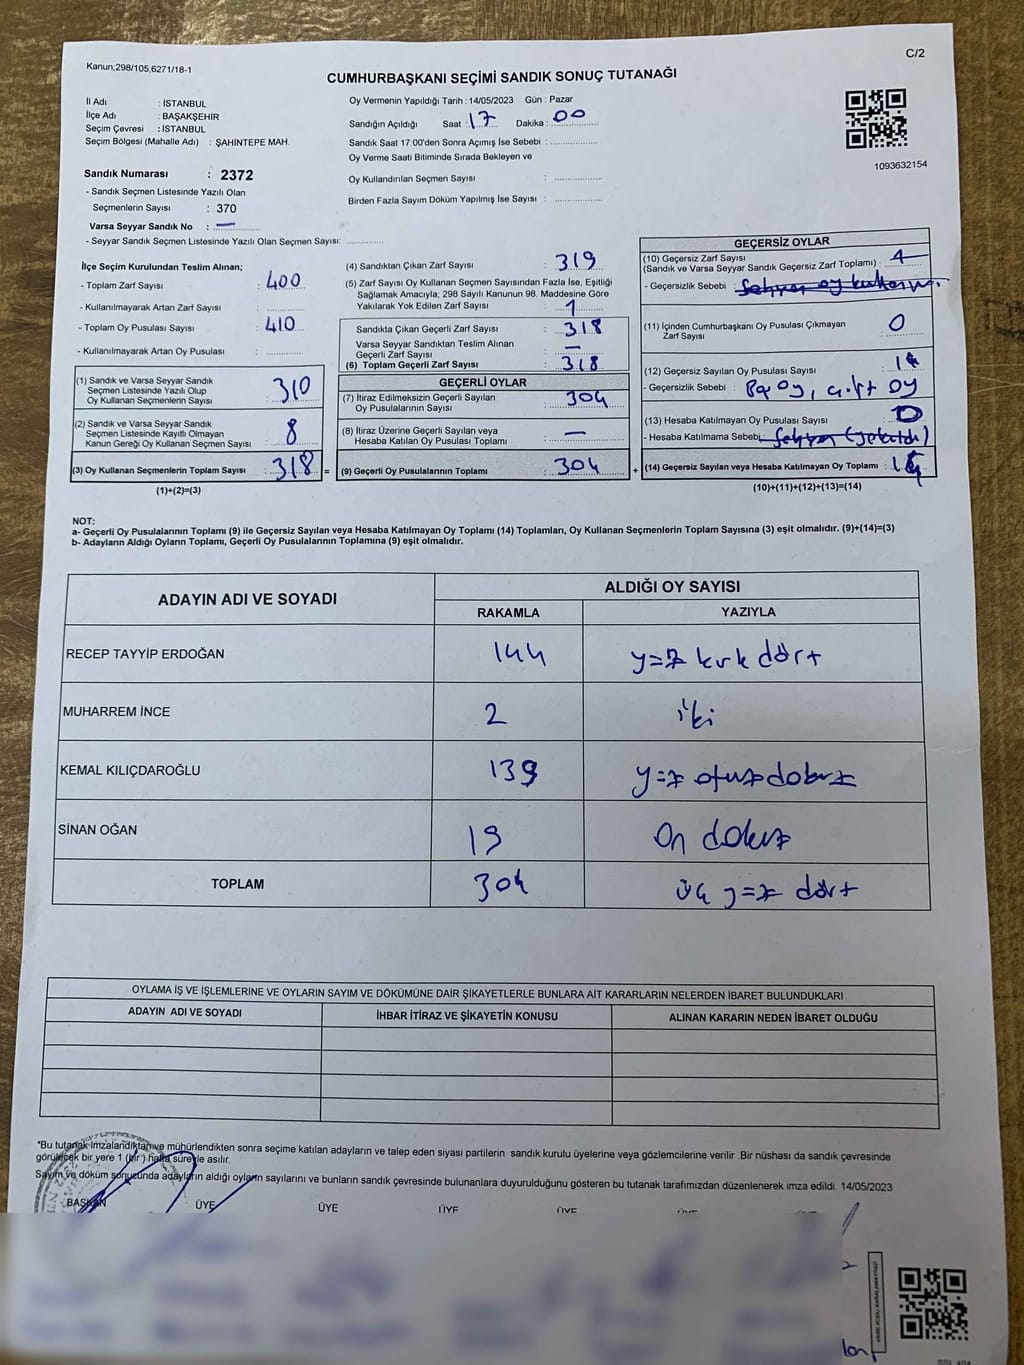 C/2
Kanun,298/105,6271/18-1
CUMHURBAŞKANI SEÇİMİ SANDIK SONUÇ TUTANAĞI
İl Adı : İSTANBUL
İlçe Adı : BAŞAKŞEHİR
Seçim Çevresi : İSTANBUL
Seçim Bölgesi (Mahalle Adı) : ŞAHİNTEPE MAH.
Sandık Numarası : 2372
- Sandık Seçmen Listesinde Yazılı Olan
Seçmenlerin Sayısı : 370
Varsa Seyyar Sandık No : —
- Seyyar Sandık Seçmen Listesinde Yazılı Olan Seçmen Sayısı: ............
Oy Vermenin Yapıldığı Tarih : 14/05/2023 Gün : Pazar
Sandığın Açıldığı Saat : 17 Dakika : 00
Sandık Saat 17:00'den Sonra Açımış İse Sebebi : ............
Oy Verme Saati Bitiminde Sırada Bekleyen ve
Oy Kullandırılan Seçmen Sayısı : ............
Birden Fazla Sayım Döküm Yapılmış İse Sayısı : ............
1093632154
İlçe Seçim Kurulundan Teslim Alınan;
- Toplam Zarf Sayısı : 400
- Kullanılmayarak Artan Zarf Sayısı : ............
- Toplam Oy Pusulası Sayısı : 410
- Kullanılmayarak Artan Oy Pusulası : ............
(1) Sandık ve Varsa Seyyar Sandık
Seçmen Listesinde Yazılı Olup
Oy Kullanan Seçmenlerin Sayısı : 310
(2) Sandık ve Varsa Seyyar Sandık
Seçmen Listesinde Kayıtlı Olmayan
Kanun Gereği Oy Kullanan Seçmen Sayısı : 8
(3) Oy Kullanan Seçmenlerin Toplam Sayısı : 318 =
(1)+(2)=(3)
(4) Sandıktan Çıkan Zarf Sayısı : 319
(5) Zarf Sayısı Oy Kullanan Seçmen Sayısından Fazla İse, Eşitliği
Sağlamak Amacıyla, 298 Sayılı Kanunun 98. Maddesine Göre
Yakılarak Yok Edilen Zarf Sayısı : 1
Sandıkta Çıkan Geçerli Zarf Sayısı : 318
Varsa Seyyar Sandıktan Teslim Alınan
Geçerli Zarf Sayısı : —
(6) Toplam Geçerli Zarf Sayısı : 318
GEÇERLİ OYLAR
(7) İtiraz Edilmeksizin Geçerli Sayılan
Oy Pusulalarının Sayısı : 304
(8) İtiraz Üzerine Geçerli Sayılan veya
Hesaba Katılan Oy Pusulası Toplamı : —
(9) Geçerli Oy Pusulalarının Toplamı : 304 +
GEÇERSİZ OYLAR
(10) Geçersiz Zarf Sayısı
(Sandık ve Varsa Seyyar Sandık Geçersiz Zarf Toplamı) :
- Geçersizlik Sebebi :
(11) İçinden Cumhurbaşkanı Oy Pusulası Çıkmayan
Zarf Sayısı : 0
(12) Geçersiz Sayılan Oy Pusulası Sayısı : 14
- Geçersizlik Sebebi : Boş oy, çift oy
(13) Hesaba Katılmayan Oy Pusulası Sayısı : 0
- Hesaba Katılmama Sebebi:
(14) Geçersiz Sayılan veya Hesaba Katılmayan Oy Toplamı : 14
(10)+(11)+(12)+(13)=(14)
NOT:
a- Geçerli Oy Pusulalarının Toplamı (9) ile Geçersiz Sayılan veya Hesaba Katılmayan Oy Toplamı (14) Toplamları, Oy Kullanan Seçmenlerin Toplam Sayısına (3) eşit olmalıdır. (9)+(14)=(3)
b- Adayların Aldığı Oyların Toplamı, Geçerli Oy Pusulalarının Toplamına (9) eşit olmalıdır.
ADAYIN ADI VE SOYADI
ALDIĞI OY SAYISI
RAKAMLA YAZIYLA
RECEP TAYYİP ERDOĞAN 144 yüz kırk dört
MUHARREM İNCE 2 iki
KEMAL KILIÇDAROĞLU 139 yüz otuz dokuz
SİNAN OĞAN 19 On dokuz
TOPLAM 304 üç yüz dört
OYLAMA İŞ VE İŞLEMLERİNE VE OYLARIN SAYIM VE DÖKÜMÜNE DAİR ŞİKAYETLERLE BUNLARA AİT KARARLARIN NELERDEN İBARET BULUNDUKLARI
ADAYIN ADI VE SOYADI İHBAR İTİRAZ VE ŞİKAYETİN KONUSU ALINAN KARARIN NEDEN İBARET OLDUĞU
*Bu tutanak imzalandıktan ve mühürlendikten sonra seçime katılan adayların ve talep eden siyasi partilerin sandık kurulu üyelerine veya gözlemcilerine verilir .Bir nüshası da sandık çevresinde
görülecek bir yere 1 (bir ) hafta süreyle asılır.
Sayım ve döküm sonucunda adayların aldığı oyların sayılarını ve bunların sandık çevresinde bulunanlara duyurulduğunu gösteren bu tutanak tarafımızdan düzenlenerek imza edildi. 14/05/2023
BAŞKAN ÜYE ÜYE ÜYE ÜYE ÜYE ÜYE